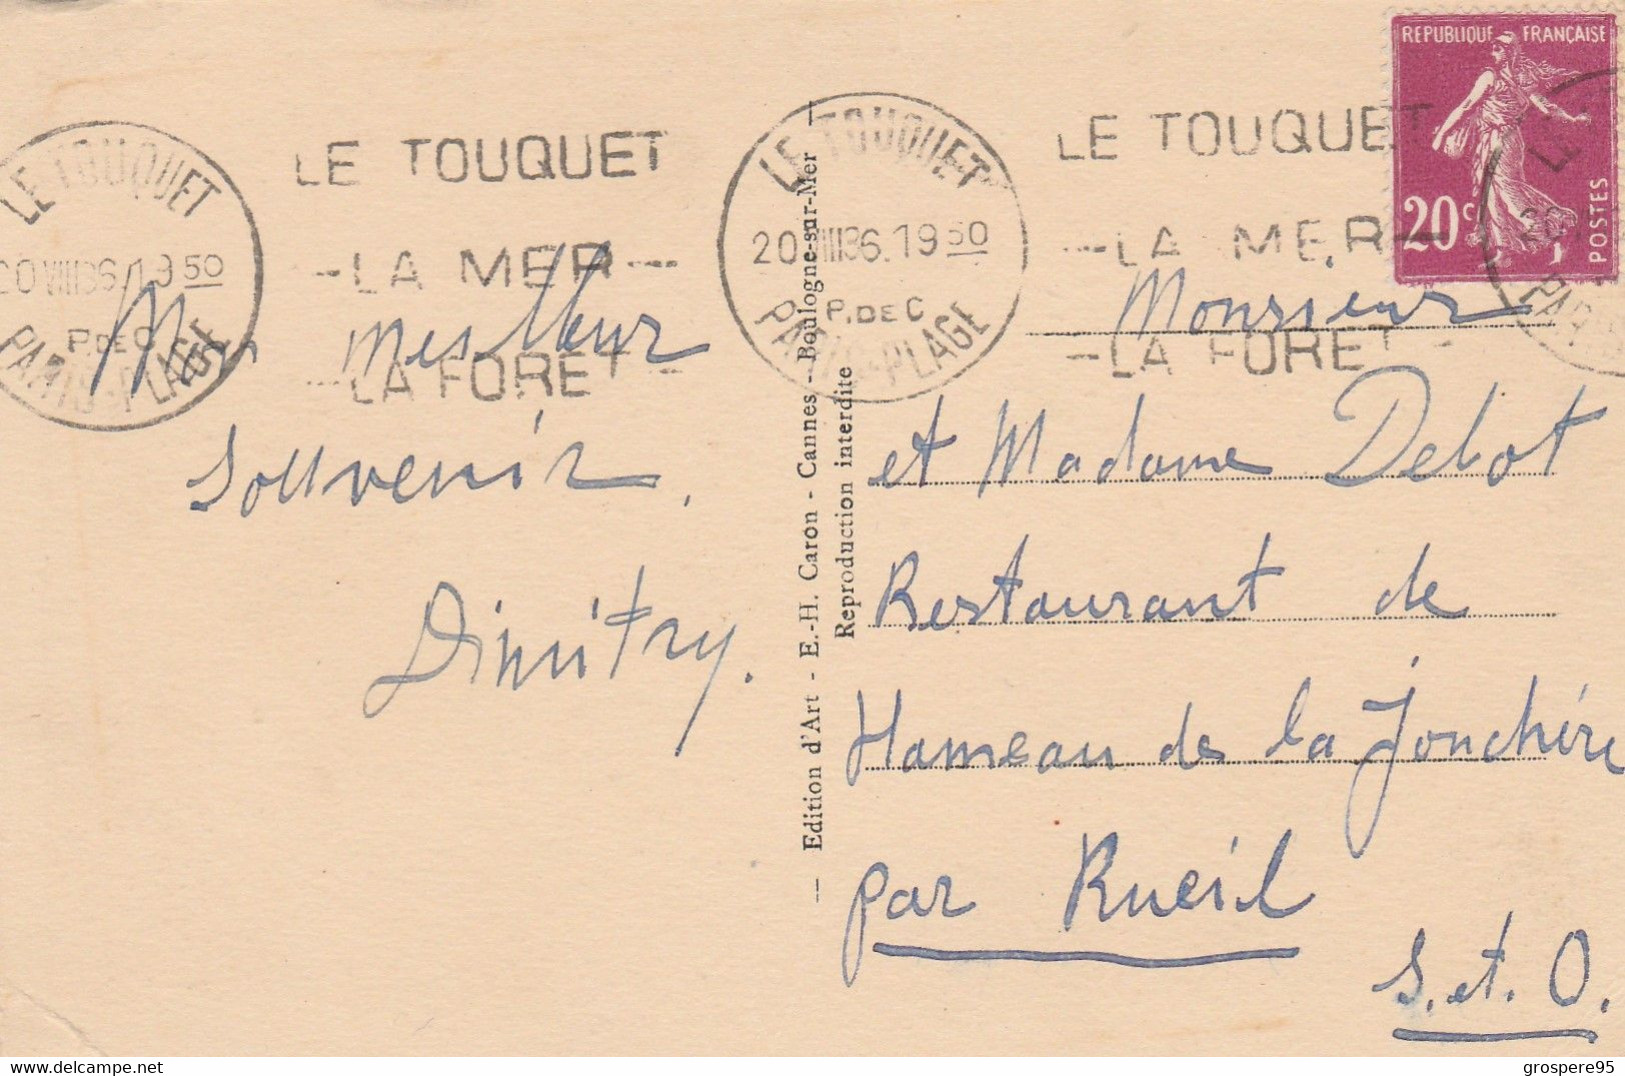 REPUBLIQUE FRANÇAISE
20c
POSTES
LE TOUQUET
20 VIII 36. 19 50
P. DE C
PARIS-PLAGE
LE TOUQUET
-LA MER-
-LA FORET-
LE TOUQUET
20 VIII 36. 19 50
P. DE C
PARIS-PLAGE
LE TOUQUET
-LA MER-
-LA FORET-
meilleur
souvenir.
Dimitry.
— Edition d'Art - E.-H. Caron - Cannes - Boulogne-sur-Mer —
Reproduction interdite
Monsieur
et Madame Debot
Restaurant de
Hameau de la Jonchère
par Rueil
S. et. O.
grospere95